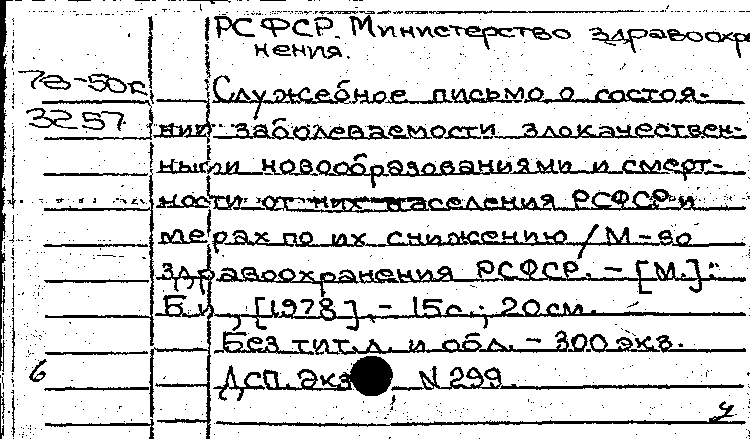 РСФСР. Министерство здравоохра
нения.
78-50с Служебное письмо о состоя-
3257 нии заболеваемости злокачествен-
ными новообразованиями и смерт-
ности от них населения РСФСР и
мерах по их снижению / М-во
здравоохранения РСФСР. – [М.]:
Б.и., [1978]. – 15с.; 20см.
Без тит.л. и обл. – 300 экз.
6 Дсп. Экз N 299.